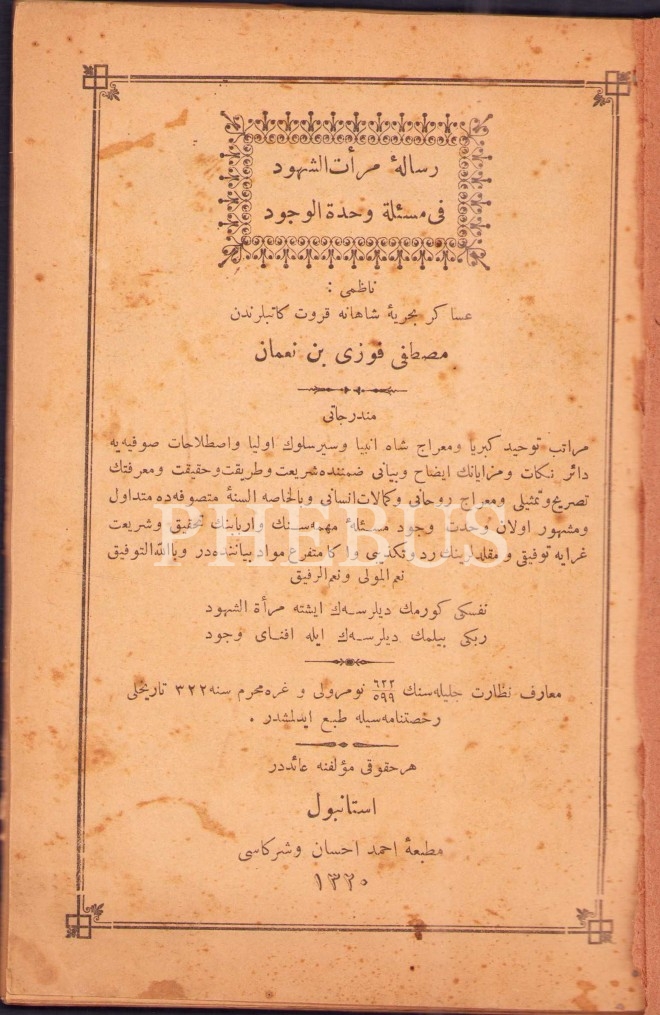 رسالهٔ مرأت الشهود
فی مسئلة وحدة الوجود
ناظمی :
عساکر بحریهٔ شاهانه قروت کاتبلرندن
مصطفی فوزی بن نعمان
مندرجاتی
مراتب توحید کبریا ومعراج شاه انبیا وسیر سلوك اولیا واصطلاحات صوفیه‌یه
دائر نکات ومزایانك ایضاح وبیانی ضمننده شریعت وطریقت وحقیقت ومعرفتك
تصریح وتمثیلی ومعراج روحانی وکمالات انسانی وبالخاصه السنهٔ متصوفه‌ده متداول
ومشهور اولان وحدت وجود مسئلهٔ مهمه‌سنك واربابنك تحقیق وشریعت
غرایه توفیقی ومقلدلرینك رد وتکذیبی واکا متفرع مواد بیاننده‌در وبالله التوفیق
نعم المولی ونعم الرفیق
نفسکی کورمك دیلرسه‌ك ایشته مرأة الشهود
ربکی بیلمك دیلرسه‌ك ایله افنای وجود
معارف نظارت جلیله‌سنك ٦٢٢/٥٩٩ نومرولی و غره محرم سنه ٣٢٢ تاریخلی
رخصتنامه‌سیله طبع ایدلمشدر .
هر حقوقی مؤلفنه عائددر
استانبول
مطبعهٔ احمد احسان وشرکاسی
١٣٢٠
PHEBUS